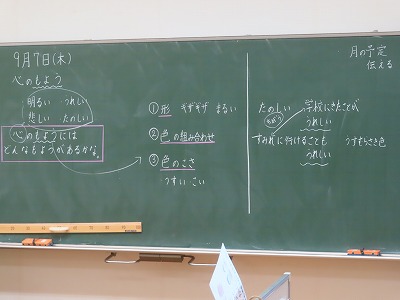 9月7日(木)
心のもよう
明るい うれしい
悲しい たのしい
心のもようには
どんなもようがあるかな。
① 形 ギザギザ まるい
② 色の組み合わせ
③ 色のこさ
うすい こい
月の予定
伝える
たのしい 学校にきたことが
うれしい
すみれに行けることも うすむらさき色
うれしい